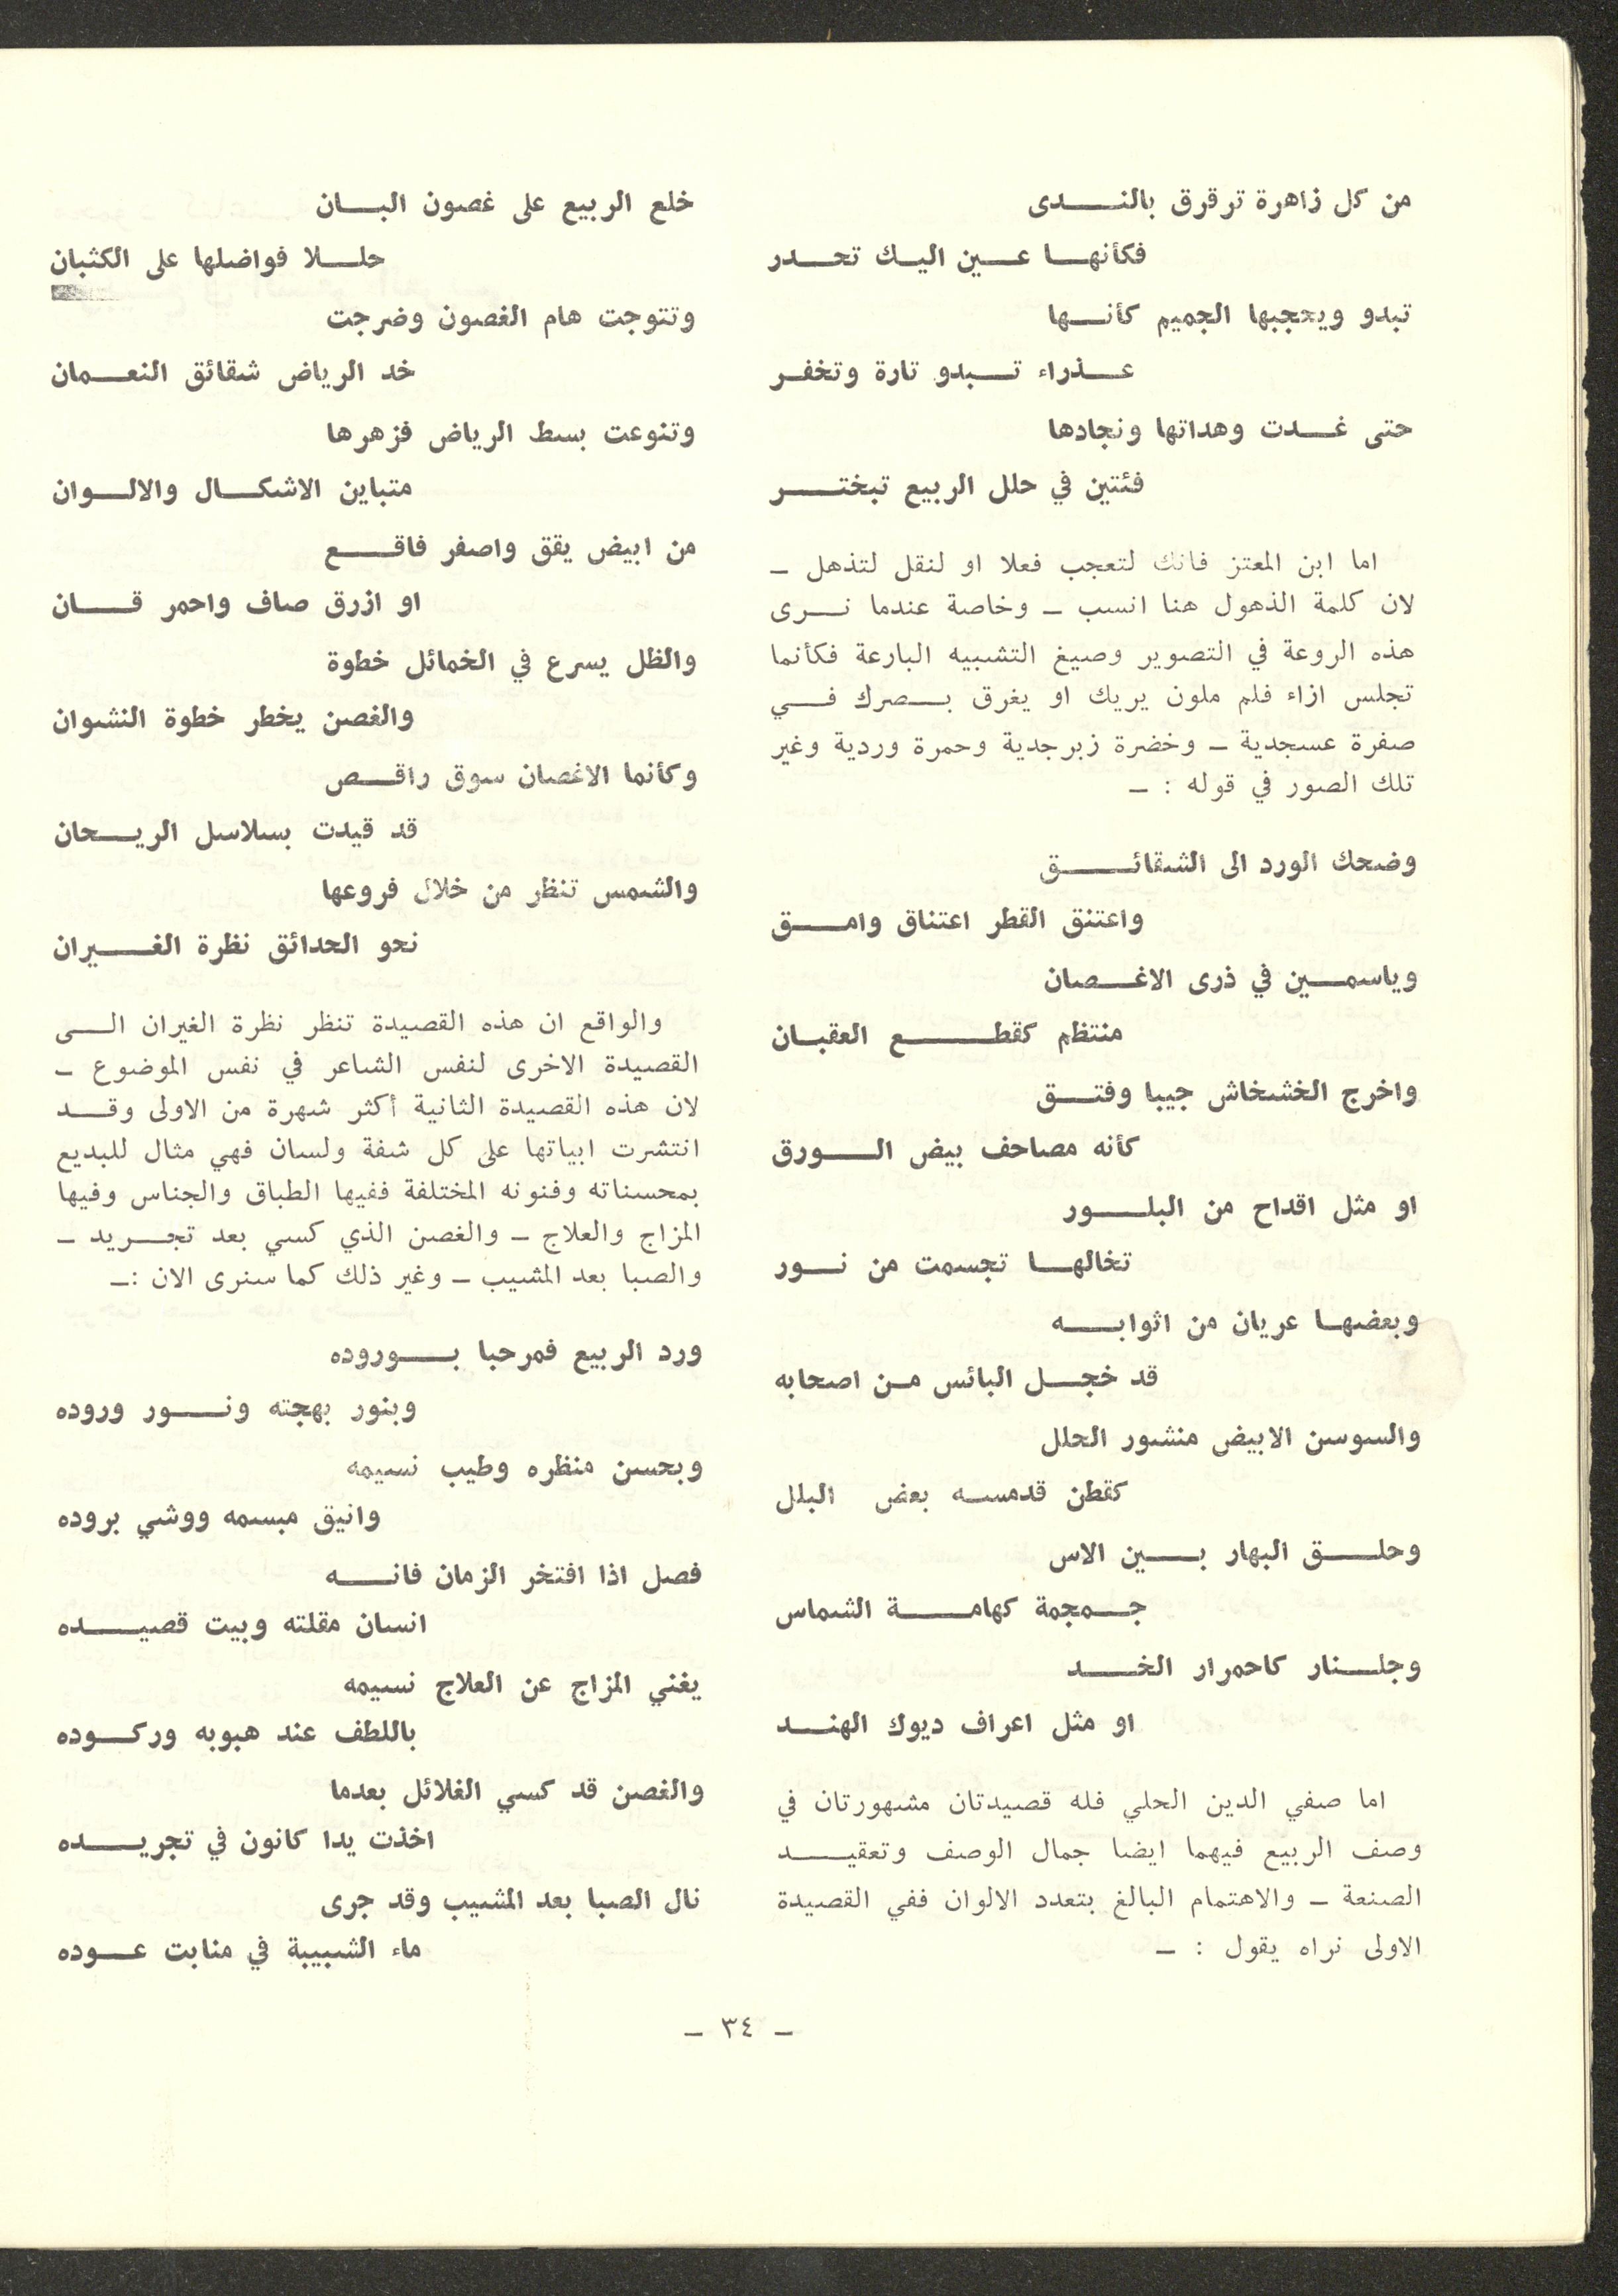 من كل زاهرة ترقرق بالندى
فكأنها عين اليك تحدر
تبدو ويحجبها الجميم كأنها
عذراء تبدو تارة وتخفر
حتى غدت وهداتها ونجادها
فئتين في حلل الربيع تبختر
اما ابن المعتز فانك لتعجب فعلا او لنقل لتذهل –
لان كلمة الذهول هنا انسب – وخاصة عندما نرى
هذه الروعة في التصوير وصيغ التشبيه البارعة فكأنما
تجلس ازاء فلم ملون يريك او يغرق بصرك في
صفرة عسجدية – وخضرة زبرجدية وحمرة وردية وغير
تلك الصور في قوله : –
وضحك الورد الى الشقائق
واعتنق القطر اعتناق وامق
وياسمين في ذرى الاغصان
منتظم كقطع العقبان
واخرج الخشخاش جيبا وفتق
كأنه مصاحف بيض الورق
او مثل اقداح من البلور
تخالها تجسمت من نور
وبعضها عريان من اثوابه
قد خجل البائس من اصحابه
والسوسن الابيض منشور الحلل
كقطن قدمسه بعض البلل
وحلق البهار بين الاس
جمجمة كهامة الشماس
وجلنار كاحمرار الخد
او مثل اعراف ديوك الهند
اما صفي الدين الحلي فله قصيدتان مشهورتان في
وصف الربيع فيهما ايضا جمال الوصف وتعقيد
الصنعة – والاهتمام البالغ بتعدد الالوان ففي القصيدة
الاولى نراه يقول : –
خلع الربيع على غصون البان
حللا فواضلها على الكثبان
وتتوجت هام الغصون وضرجت
خد الرياض شقائق النعمان
وتنوعت بسط الرياض فزهرها
متباين الاشكال والالوان
من ابيض يقق واصفر فاقع
او ازرق صاف واحمر قان
والظل يسرع في الخمائل خطوة
والغصن يخطر خطوة النشوان
وكأنما الاغصان سوق راقص
قد قيدت بسلاسل الريحان
والشمس تنظر من خلال فروعها
نحو الحدائق نظرة الغيران
والواقع ان هذه القصيدة تنظر نظرة الغيران الى
القصيدة الاخرى لنفس الشاعر في نفس الموضوع –
لان هذه القصيدة الثانية أكثر شهرة من الاولى وقد
انتشرت ابياتها على كل شفة ولسان فهي مثال للبديع
بمحسناته وفنونه المختلفة ففيها الطباق والجناس وفيها
المزاج والعلاج – والغصن الذي كسي بعد تجريد –
والصبا بعد المشيب – وغير ذلك كما سنرى الان :–
ورد الربيع فمرحبا بوروده
وبنور بهجته ونور وروده
وبحسن منظره وطيب نسيمه
وانيق مبسمه ووشي بروده
فصل اذا افتخر الزمان فانه
انسان مقلته وبيت قصيده
يغني المزاج عن العلاج نسيمه
باللطف عند هبوبه وركوده
والغصن قد كسي الغلائل بعدما
اخذت يدا كانون في تجريده
نال الصبا بعد المشيب وقد جرى
ماء الشبيبة في منابت عوده
– ٣٤ –